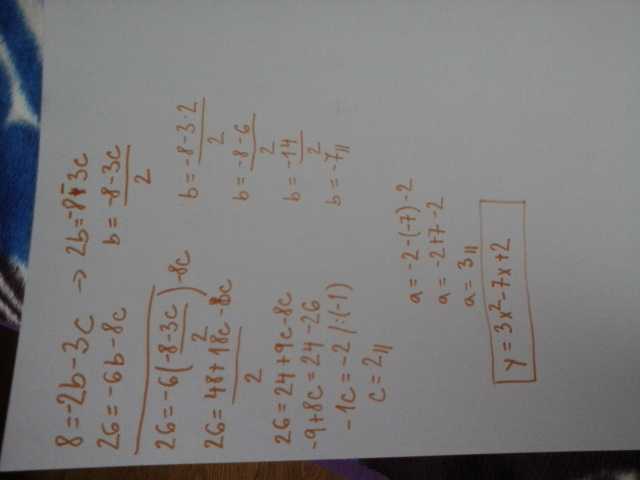 8=-2b-3c -> 2b=-8-3c
26=-6b-8c
b=\frac{-8-3c}{2}
26=-6(\frac{-8-3c}{2})-8c
26=\frac{48+18c}{2}-8c
26=24+9c-8c
-9+8c=24-26
-1c=-2/:(-1)
c=2
b=\frac{-8-3·2}{2}
b=\frac{-8-6}{2}
b=\frac{-14}{2}
b=-7
a=-2-(-7)-2
a=-2+7-2
a=3
y=3x²-7x+2